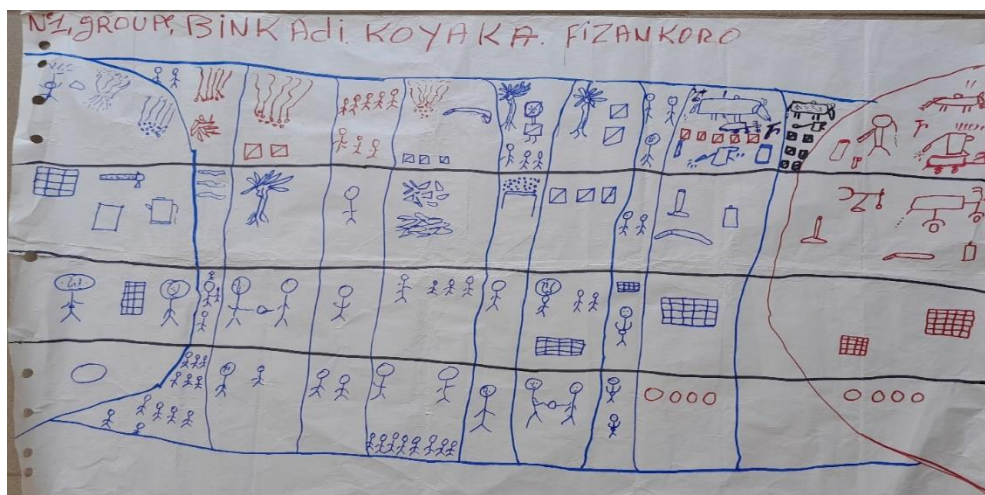 N°1, GROUPE, BINKAdi. KOYAKA. FIZANKORO